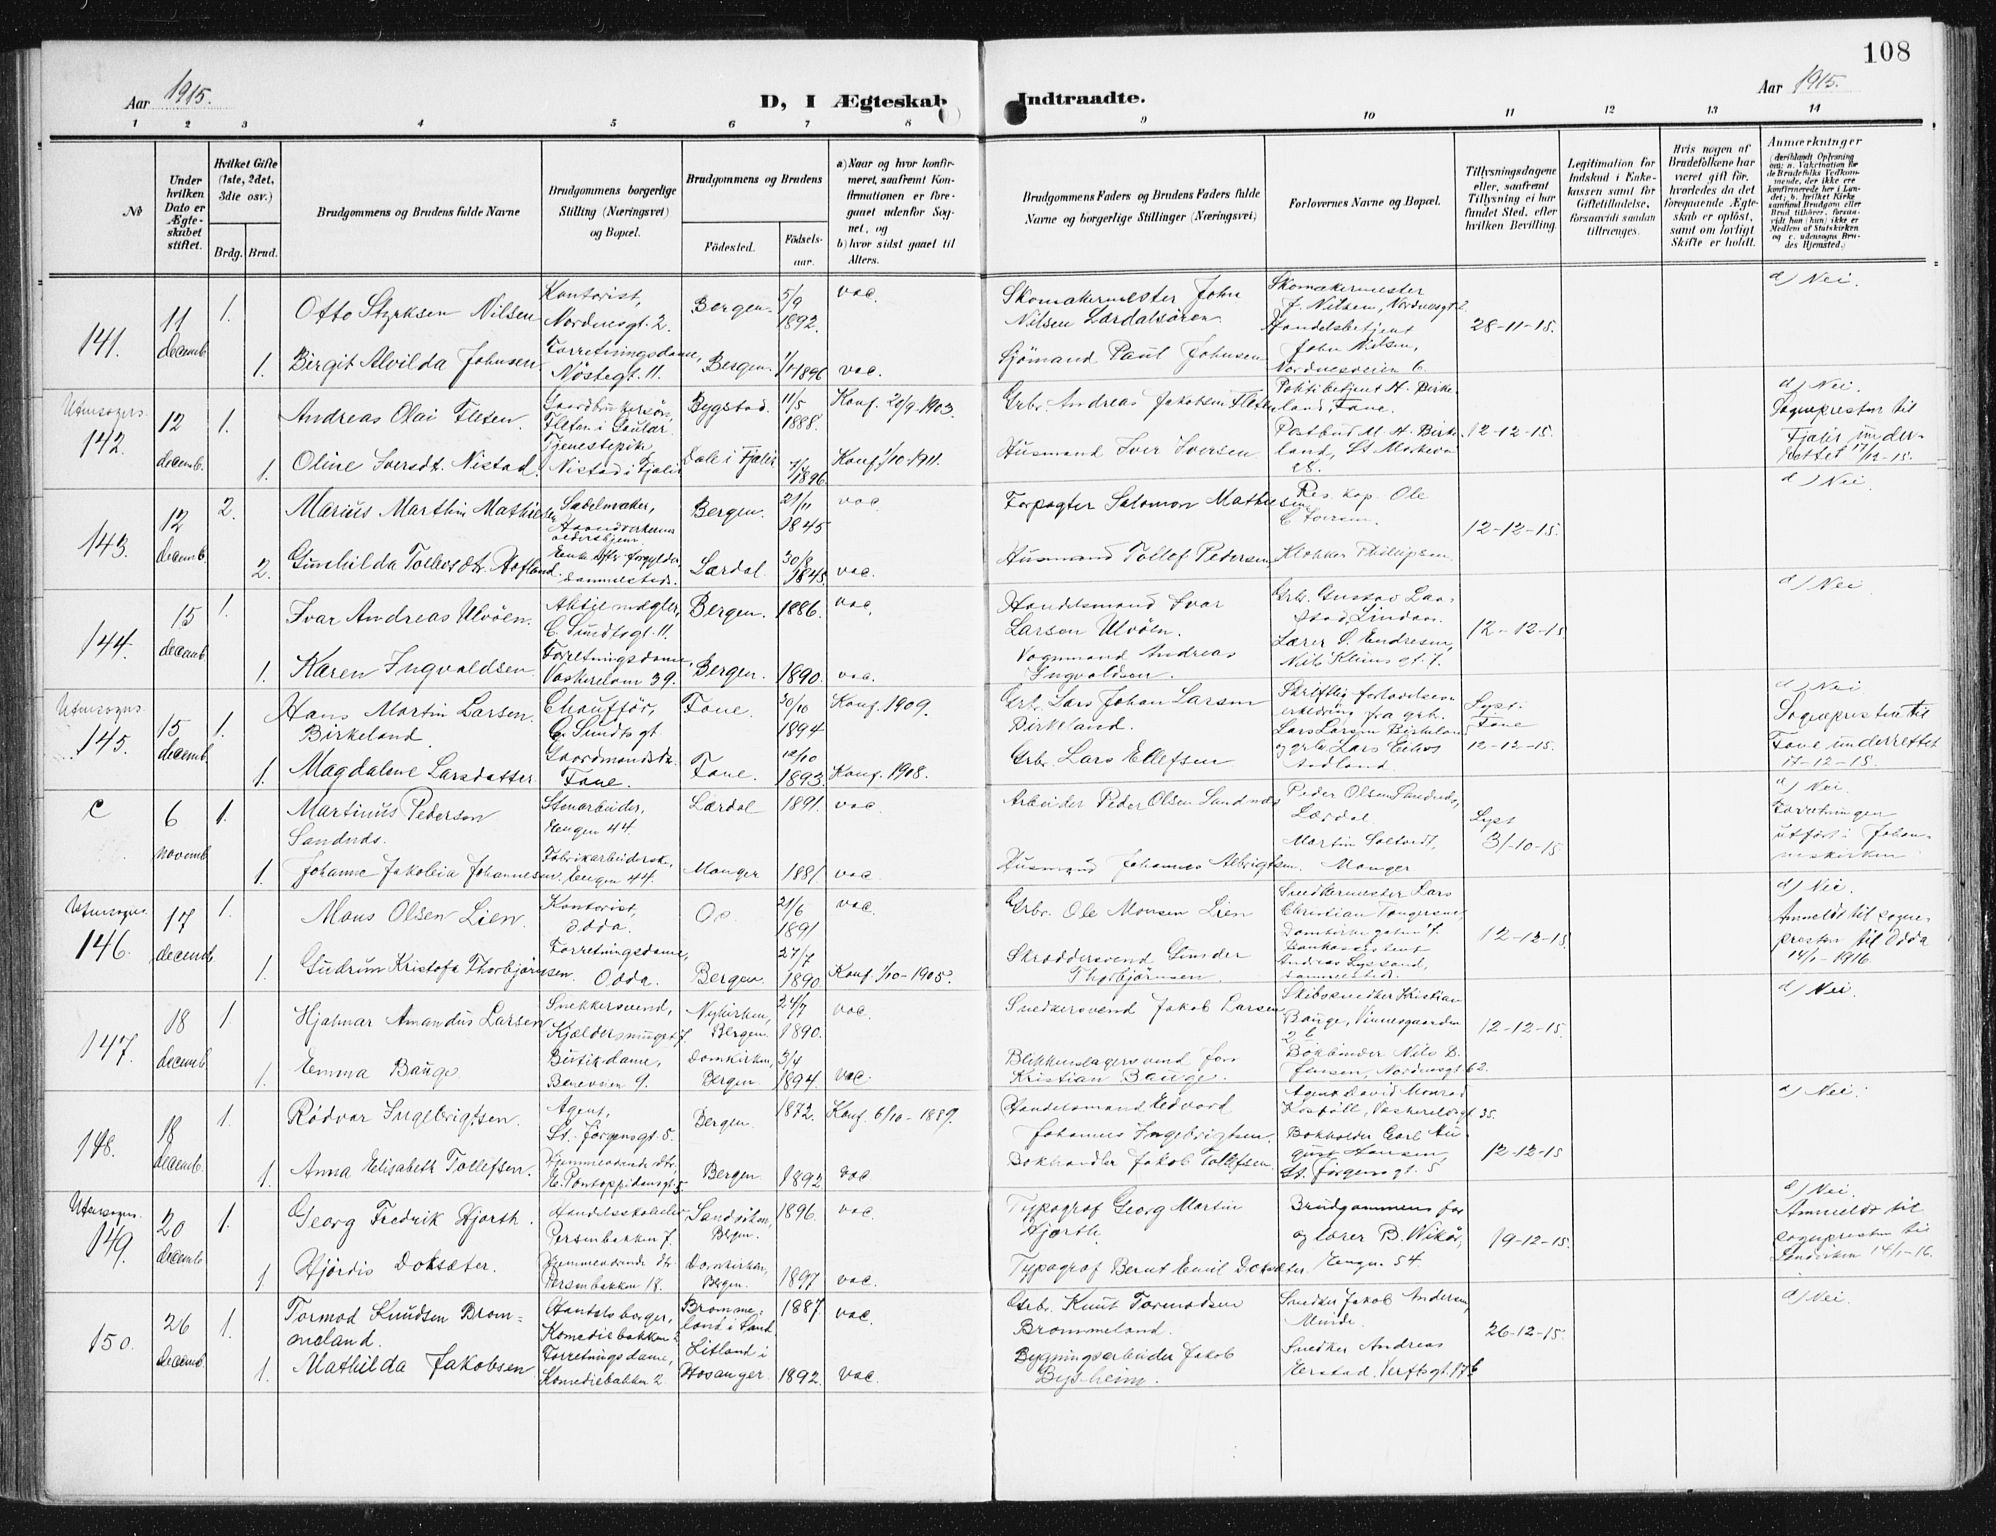 108
Aar 1915.
D, I Ægteskab Indtraadte.
Aar 1915.
1 2 3 4 5 6 7 8 9 10 11 12 13 14
No
Under hvilken Dato er Ægteskabet stiftet.
Hvilket Gifte (1ste, 2det, 3die osv.)
Brdg. Brud.
Brudgommens og Brudens fulde Navne
Brudgommens borgerlige Stilling (Næringsvei) og Bopæl.
Brudgommens og Brudens
Fødested. Fødsels-aar.
a) Naar og hvor konfirmeret, saafremt Konfirmationen er foregaaet udenfor Sognet, og
b) hvor sidst gaaet til Alters.
Brudgommens Faders og Brudens Faders fulde Navne og borgerlige Stillinger (Næringsvei)
Forlovernes Navne og Bopæl.
Tillysningsdagene eller, saafremt Tillysning ei har fundet Sted, efter hvilken Bevilling.
Legitimation for Indskud i Enkekassen samt for Giftetilladelse, forsaavidt saadan tiltrænges.
Hvis nogen af Brudefolkene har været gift før, hvorledes da det foregaaende Ægteskab er opløst, samt om lovligt Skifte er holdt.
Anmærkninger
141. 11 decemb. 1. Otto Styrksen Nilsen Kontorist, Nordnesgt. 2. Bergen. 5/9 1892. vac. Skomakermester John Nilsen Lærdalsøren. Skomakermester J. Nilsen, Nordnesgt 2 Handelsbetjent John Nilsen, Nordnesveien 6. 28-11-15. d) Nei.
1. Birgit Alvilda Johnsen Forretningsdame, Nøstegt. 11. Bergen. 1896 vac. Sjømand Paul Johnsen
Utensogns. 142. 12 decemb. 1. Andreas Olai Fleten. Gaardbrukersøn, Fleten i Gaular Bygstad. 11/5 1888. Konf. 20/9-1903. Grbr. Andreas Jakobsen Fleten Politibetjent H. Birkeland, Fane. Postbud M. H. Birkeland, St. Markevei 12-12-15. d) Nei. Sognepresten til Fjaler underrettet 17/12-15.
1. Oline Iversdt. Nistad. Tjenestepike Nistad i Fjaler Dale i Fjaler 1896. Konf 1/10-1911. Husmand Iver Iversen
143. 12 decemb. 2. Marius Marthin Mathiesen Sadelmaker, Bergen. 21/11 1845 vac. Forpagter Salomon Mathiesen Res. kap. Ole C. Iversen. 12-12-15. d) Nei
2. Gunhilda Tollefsdtr. Hofland. Lærdal. 30/8 1845. vac. Husmand Tollef Pedersen Klokker Phillipsen.
144. 15 decemb. 1. Ivar Andreas Ulvøen. Aktiemægler, C. Sundtsgt. 11. Bergen. 1886. vac. Handelsmand Ivar Larsen Ulvøen. Grbr. Gustav Larstad, Lindaas. Lærer O. Endresen, Nils Klims gt. 7. 12-12-15 d) Nei
1. Karen Ingvaldsen Forretningsdame, Vaskerelven 39. Bergen. 1890. vac. Vognmand Andreas Ingvaldsen.
Utensogns. 145. 15 decemb. 1. Hans Martin Larsen Birkeland. Chauffør, C. Sundtsgt Fane. 30/10 1894 Konf. 1909. Grbr. Lars Johan Larsen Birkeland. Skriftlig forloverserklæring fra grbr. Lars Larsen Birkeland og grbr. Lars Lyst: Fane 12-12-15. d) Nei. Sogneprestene til Fane underrettet 17-12-15.
1. Magdalene Larsdatter Gaardmandsdt. Fane. Fane. 12/10 1893. Konf. 1908. Grbr. Lars Ellefsen
C 6 novemb. 1. Martinus Pedersen Sandnes. Stenarbeider, Engen 44 Lærdal 1891. vac. Arbeider Peder Olsen Sandnes Peder Olsen Sandnes, Lærdal. Martin Soltvedt, Manger Lyst 31-10-15 d) Nei. Forretningen utført i Johanneskirken
1. Johanne Jakobia Johannesen, Fabrikarbeiderske, Engen 44. Manger 1881 vac. Husmand Johannes Albrigtsen.
Utensogns. 146. 17 decemb. 1. Mons Olsen Lien. Kontorist, Odda. Os 21/6 1891 vac. Grbr. Ole Monsen Lien Snedkermester Lars Christian 12-12-15. d) Nei. Anmeldt til sognepresten til Odda 14/1-1916.
1. Gudrun Kristofa Thorbjørnsen. Forretningsdame, Odda. Bergen. 27/7 1890. Konf. 1/10-1905. Skræddersvend Gunder Thorbjørnsen.
147. 18 decemb. 1. Hjalmar Amandus Larsen Snekkersvend, Kjældersmuget 7 Nykirken, Bergen. 24/7 1890. vac. Snedkersvend Jakob Larsen Skibssnedker Kristian Bauge, Vinnesgaarden 26 Bokbinder Nils B. Jensen, Nordnesgt 62. 12-12-15. d) Nei.
1. Emma Bauge Butikdame, Domkirken, Bergen. 3/4 1894. vac. Blikkenslagersvend Jørs Kristian Bauge.
148. 18 decemb. 1. Rødvar Ingebrigtsen. Agent, St. Jørgensgt. 5. Bergen. 1872. Konf 6/10-1889. Handelsmand Edvard Johannes Ingebrigtsen. Agent David Monrad 35. Bokholder Carl August Hansen, St. Jørgensgt. 5 12-12-15 d) Nei.
1. Anna Elisabeth Tollefsen. Hjemmeværende dtr., E. Pontoppidansgt. 5. Bergen. 1892 vac. Bokhandler Jakob Tollefsen.
Utensogns. 149. 20 decemb. 1. Georg Fredrik Hjorth. Persenbakken 7. Sandviken, Bergen. 1896. vac. Typograf Georg Martin Hjorth. Brudgommens far og lærer B. Wikør, Engen 54. 19-12-15. d) Nei. Anmeldt til sognepresten til Sandviken 14/1-16.
1 Hjørdis Doksæter. Hjemmeværende dtr. Persenbakken 18. Domkirken, Bergen. 1897 vac. Typograf Bernt Emil Doksæter
150. 26 decemb. 1. Tormod Knudsen Brommeland. Komediebakken 2 Brommeland i Sand 1887 vac. Grbr. Knut Tormodsen Brommeland. Snedker Jakob Andersen, Minde. Snedker Andreas Verftsgt. 17b 26-12-15. d) Nei.
1. Mathilda Jakobsen Forretningsdame, Komediebakken 2. Litland i Hosanger 1892. vac. Bygningsarbeider Jakob Bysheim.